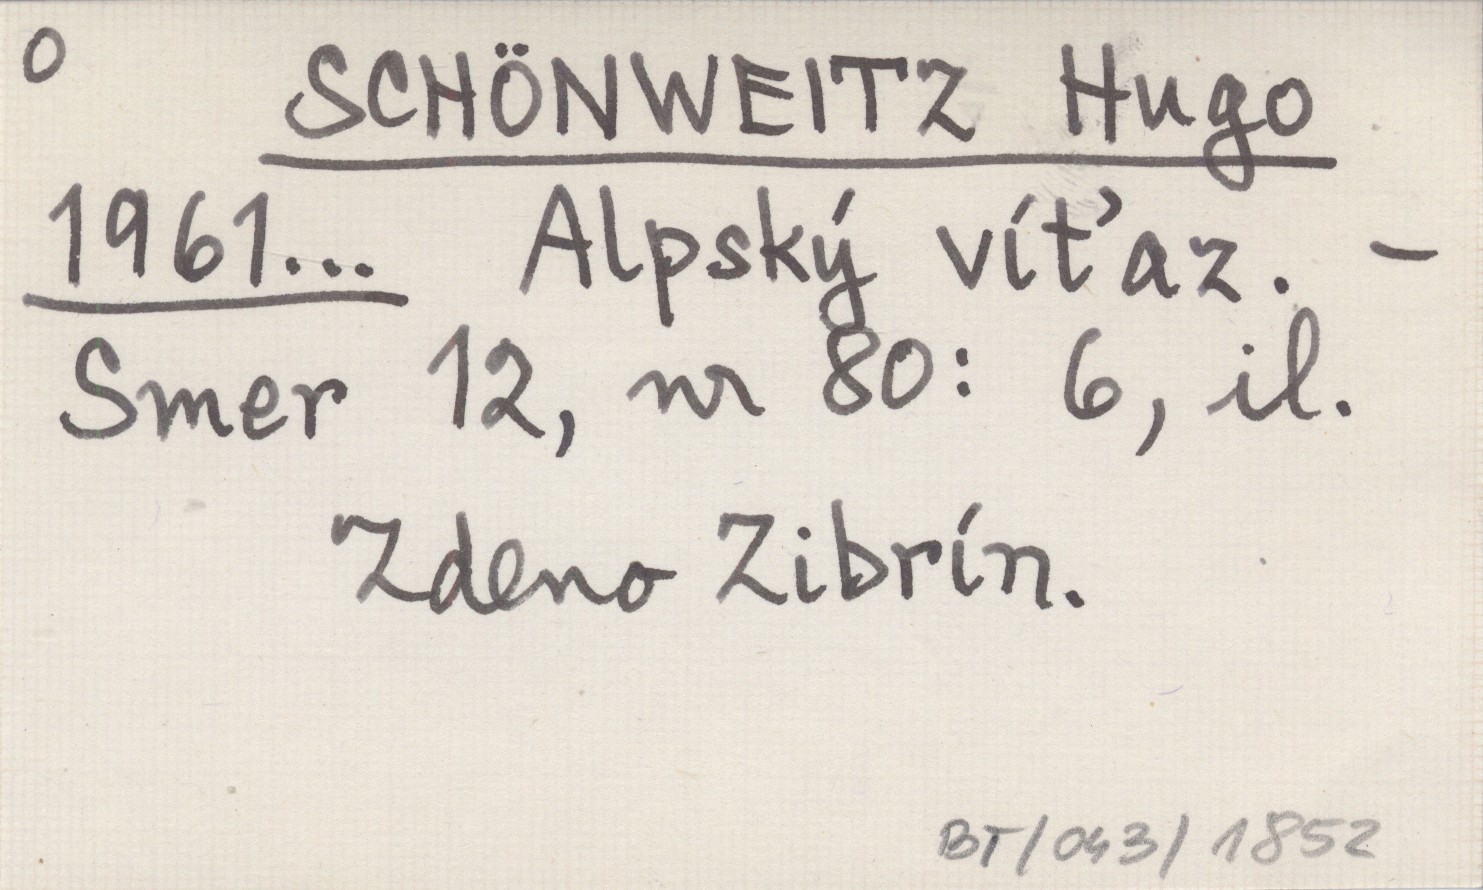 O SCHÖNWEITZ Hugo
1961... Alpský víťaz. -
Smer 12, nr 80: 6, il.
Zdeno Zibrín.
BT/043/1852